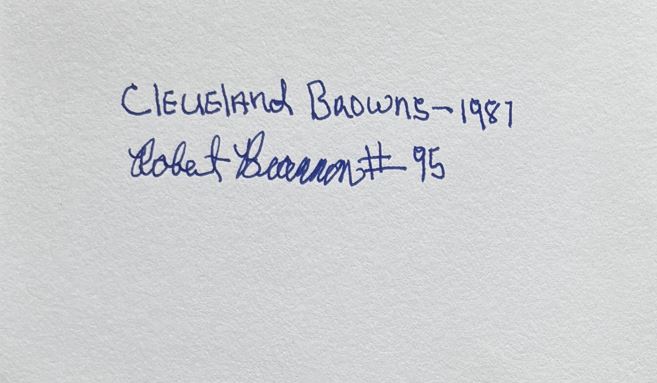 Cleveland Browns-1987
Robert Brannon #95